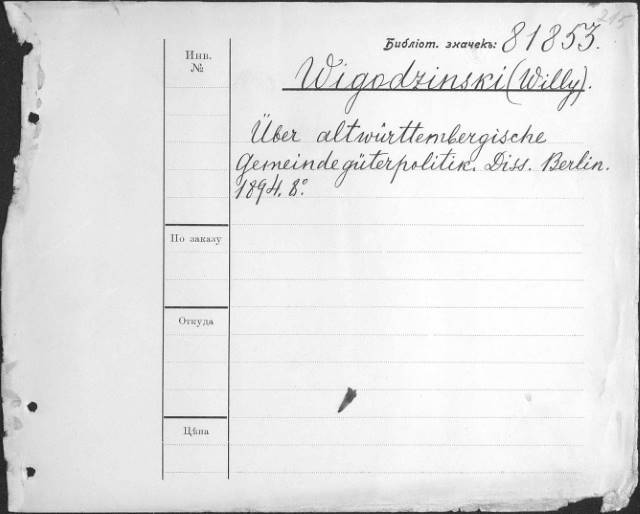 215
Библіот. значекъ: 81853.
Инв. №
Wigodzinski (Willy).
Über altwürttembergische
Gemeindegüterpolitik. Diss. Berlin.
1894. 8°.
По заказу
Откуда
Цѣна